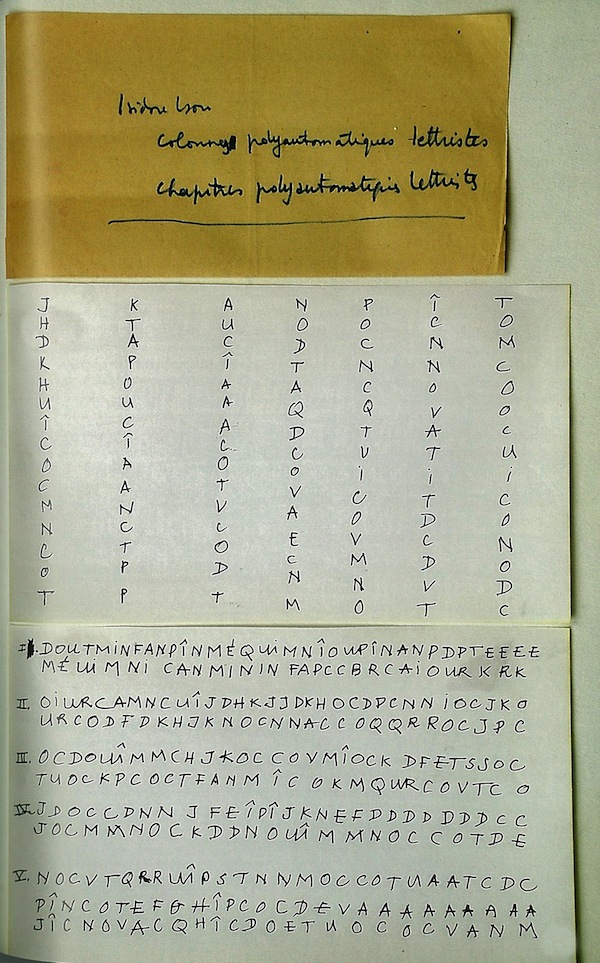 Isidore Isou
Colonnes polyautomatiques lettristes
Chapitres polyautomatiques lettristes
J K A N P Î T
H T U O O C O
D A C D C N M
K P Î T N N C
H O A A C O O
U U A Q Q V O
Î C A D T A C
C Î C C U T U
O A O O i i i
C A T V C T C
M N V A O D O
N C C E V C N
C T O C M D O
O P D N N V D
T P T M O T C
I. DOUTMINFANPÎNMÉQUIMNÎOUPÎNANPDPTEEEE
MÉUIMNI CANMININ FAPCCBRCAIOURKRK
II. OIURCAMNCUÎJDHKJJDKHOCDPCNN IOCJKO
URCODFDKHJKNOCNNACCOQQRROCJPC
III. OCDOUÎMMCHJKOCCOVMÎOCK DFETSSOC
TUOCKPCOCTFANM ÎC OKMQURCOVTC O
IV. JDOCCDNN J FEÎPÎJKNEFDDDDDDDCC
JOCMMNOCKDDNOUÎMMNOCCOTDE
V. NOCVTQRRUÎPSTNNMOCCOTUAATCDC
PÎNCOTEFGHÎPCOCDEVAAAAAAAA
JÎCNOVACQHÎCDOETUOCOCVANM